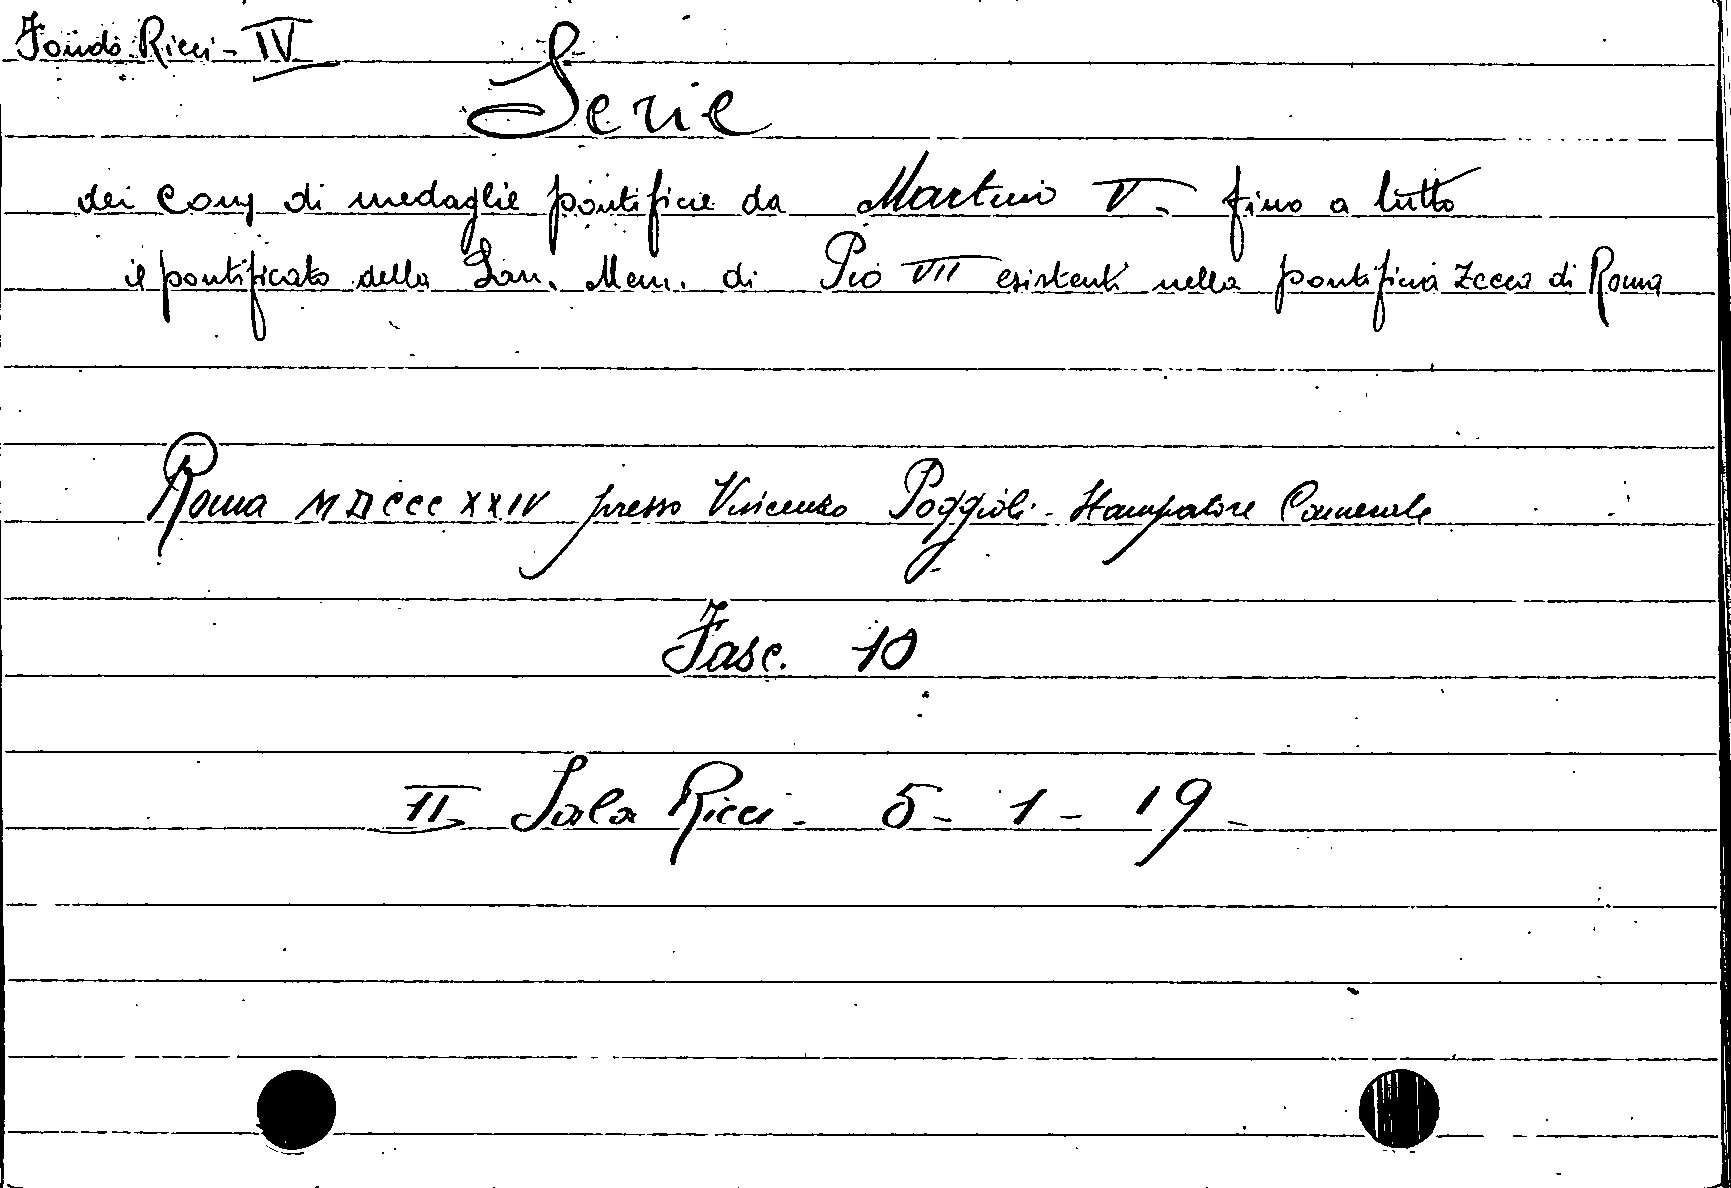 Fondo Ricci - IV
Serie
dei conj di medaglie pontificie da Martino V. fino a tutto
il pontificato della San. Mem. di Pio VII esistenti nella pontificia Zecca di Roma
Roma MDCCCXXIV presso Vincenzo Poggioli - Stampatore Camerale
Fasc. 10
II Sala Ricci - 5 - 1 - 19 -